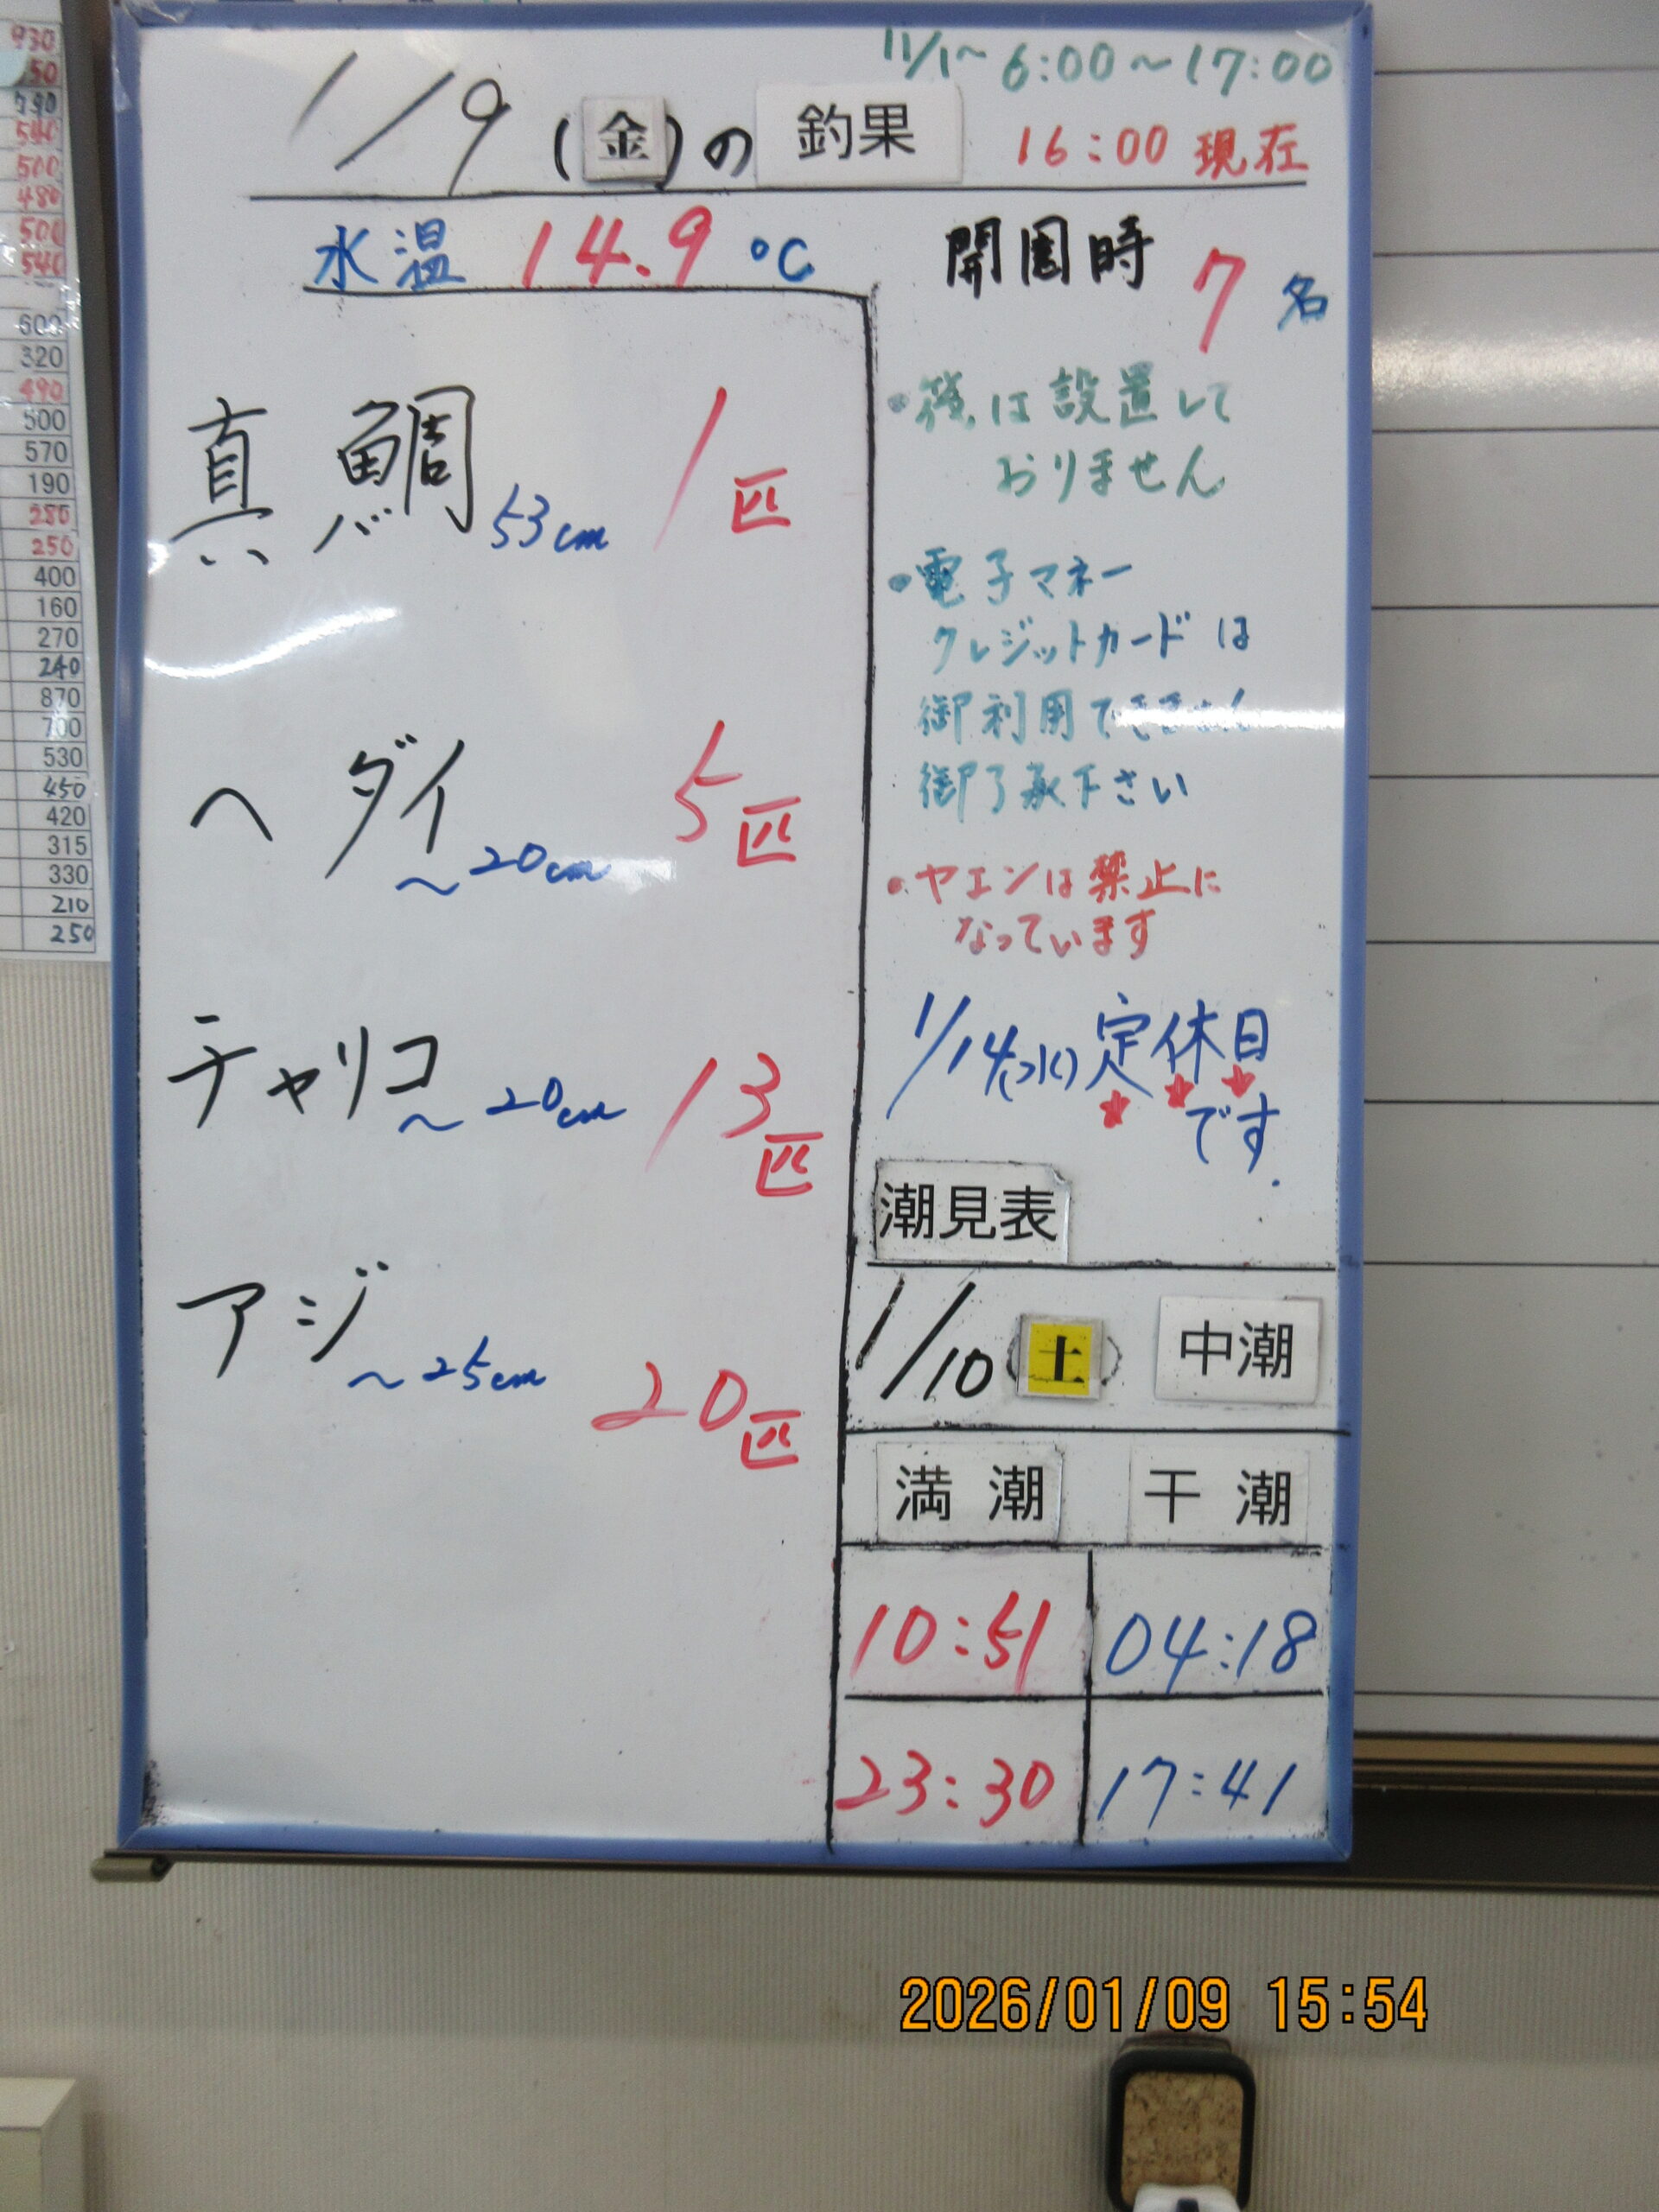 11/1~ 6:00~17:00
1/9(金)の 釣果 16:00 現在
水温 14.9 ℃
開園時 7名
真鯛 53cm 1匹
ヘダイ ~20cm 5匹
チャリコ ~20cm 13匹
アジ ~25cm 20匹
は設置して
おりません
・電子マネー
クレジットカードは
御利用できません
御了承下さい
・ヤエンは禁止に
なっています
1/14(水)定休日
です.
潮見表
1/10(土) 中潮
満潮 干潮
10:51 04:18
23:30 17:41
930
50
790
540
500
480
500
540
600
320
490
500
570
190
280
250
400
160
270
240
870
700
530
450
420
315
330
210
250
2026/01/09 15:54